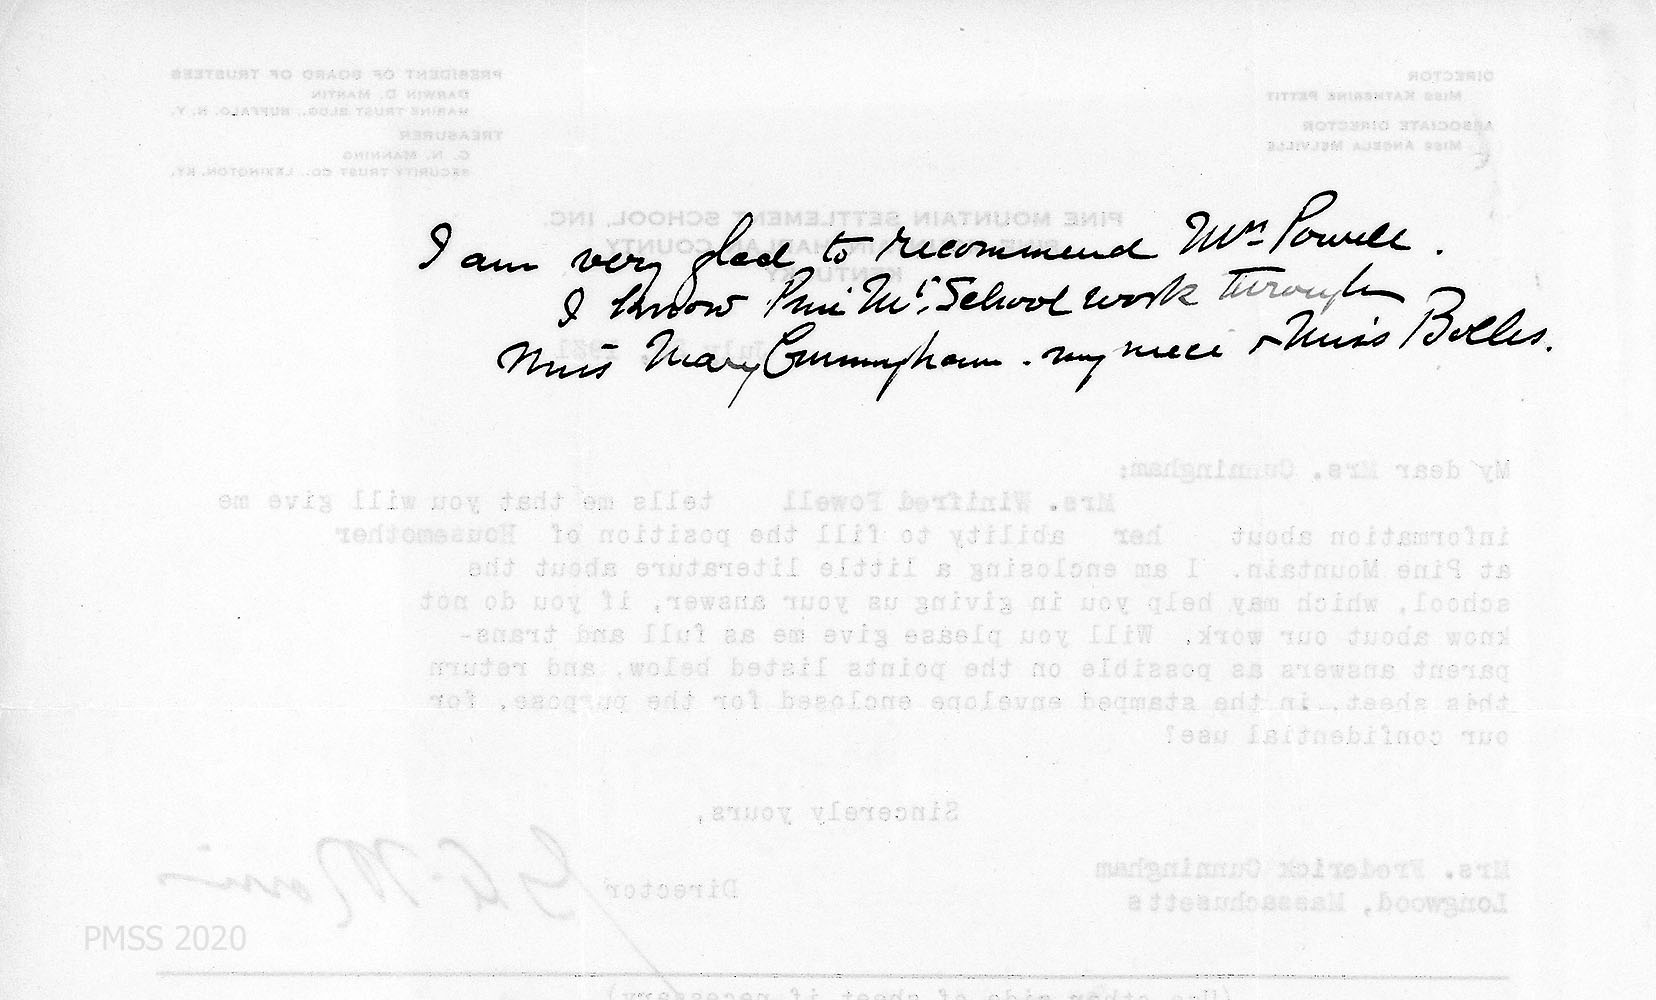 I am very glad to recommend Mrs Powell.
I know Pine Mt. School work through
Miss Mary Cunningham. my niece & Miss Bolles.
PRESIDENT OF BOARD OF TRUSTEES
DARWIN D. MARTIN
MARINE TRUST BLDG., BUFFALO, N. Y.
TREASURER
C. N. MANNING
SECURITY TRUST CO., LEXINGTON, KY.
DIRECTOR
MISS KATHERINE PETTIT
ASSOCIATE DIRECTOR
MISS ANGELA MELVILLE
PINE MOUNTAIN SETTLEMENT SCHOOL, INC.
HARLAN COUNTY
KENTUCKY
July 1921
My dear Mrs. Cunningham:
Mrs. Winifred Powell tells me that you will give me
information about her ability to fill the position of Housemother
at Pine Mountain. I am enclosing a little literature about the
school, which may help you in giving us your answer, if you do not
know about our work. Will you please give me as full and trans-
parent answers as possible on the points listed below, and return
this sheet, in the stamped envelope enclosed for the purpose, for
our confidential use?
Sincerely yours,
Director
Mrs. Frederick Cunningham
Longwood, Massachusetts
(Use other side of sheet if necessary)
PMSS 2020